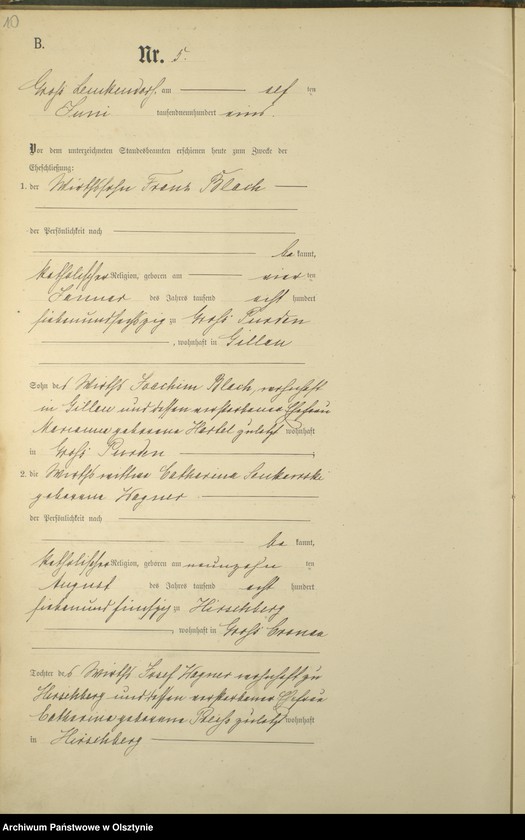 10
B.
Nr. 5.
Groß Lemkendorf, am elf ten
Juni tausendneunhundert eins.
Vor dem unterzeichneten Standesbeamten erschienen heute zum Zwecke der
Eheschließung:
1. der Wirthssohn Franz Blach
der Persönlichkeit nach
be kannt,
katholischer Religion, geboren am vier ten
Januar des Jahres tausend acht hundert
siebenundsechszig zu Groß Purden
, wohnhaft in Gillau
Sohn des Wirths Joachim Blach, wohnhaft
in Gillau und dessen verstorbenen Ehefrau
Marianna geborene Hertel zuletzt wohnhaft
in Groß Purden ;
2. die Wirthswittwe Catharina
geborene Wagner
der Persönlichkeit nach
be kannt,
katholischer Religion, geboren am neunzehn ten
August des Jahres tausend acht hundert
siebenundfünfzig zu Hirschberg
, wohnhaft in Groß Cronau
Tochter des Wirths Josef Wagner wohnhaft zu
Hirschberg und dessen verstorbener Ehefrau
Catharina geborene zuletzt wohnhaft
in Hirschberg
Archiwum Państwowe w Olsztynie